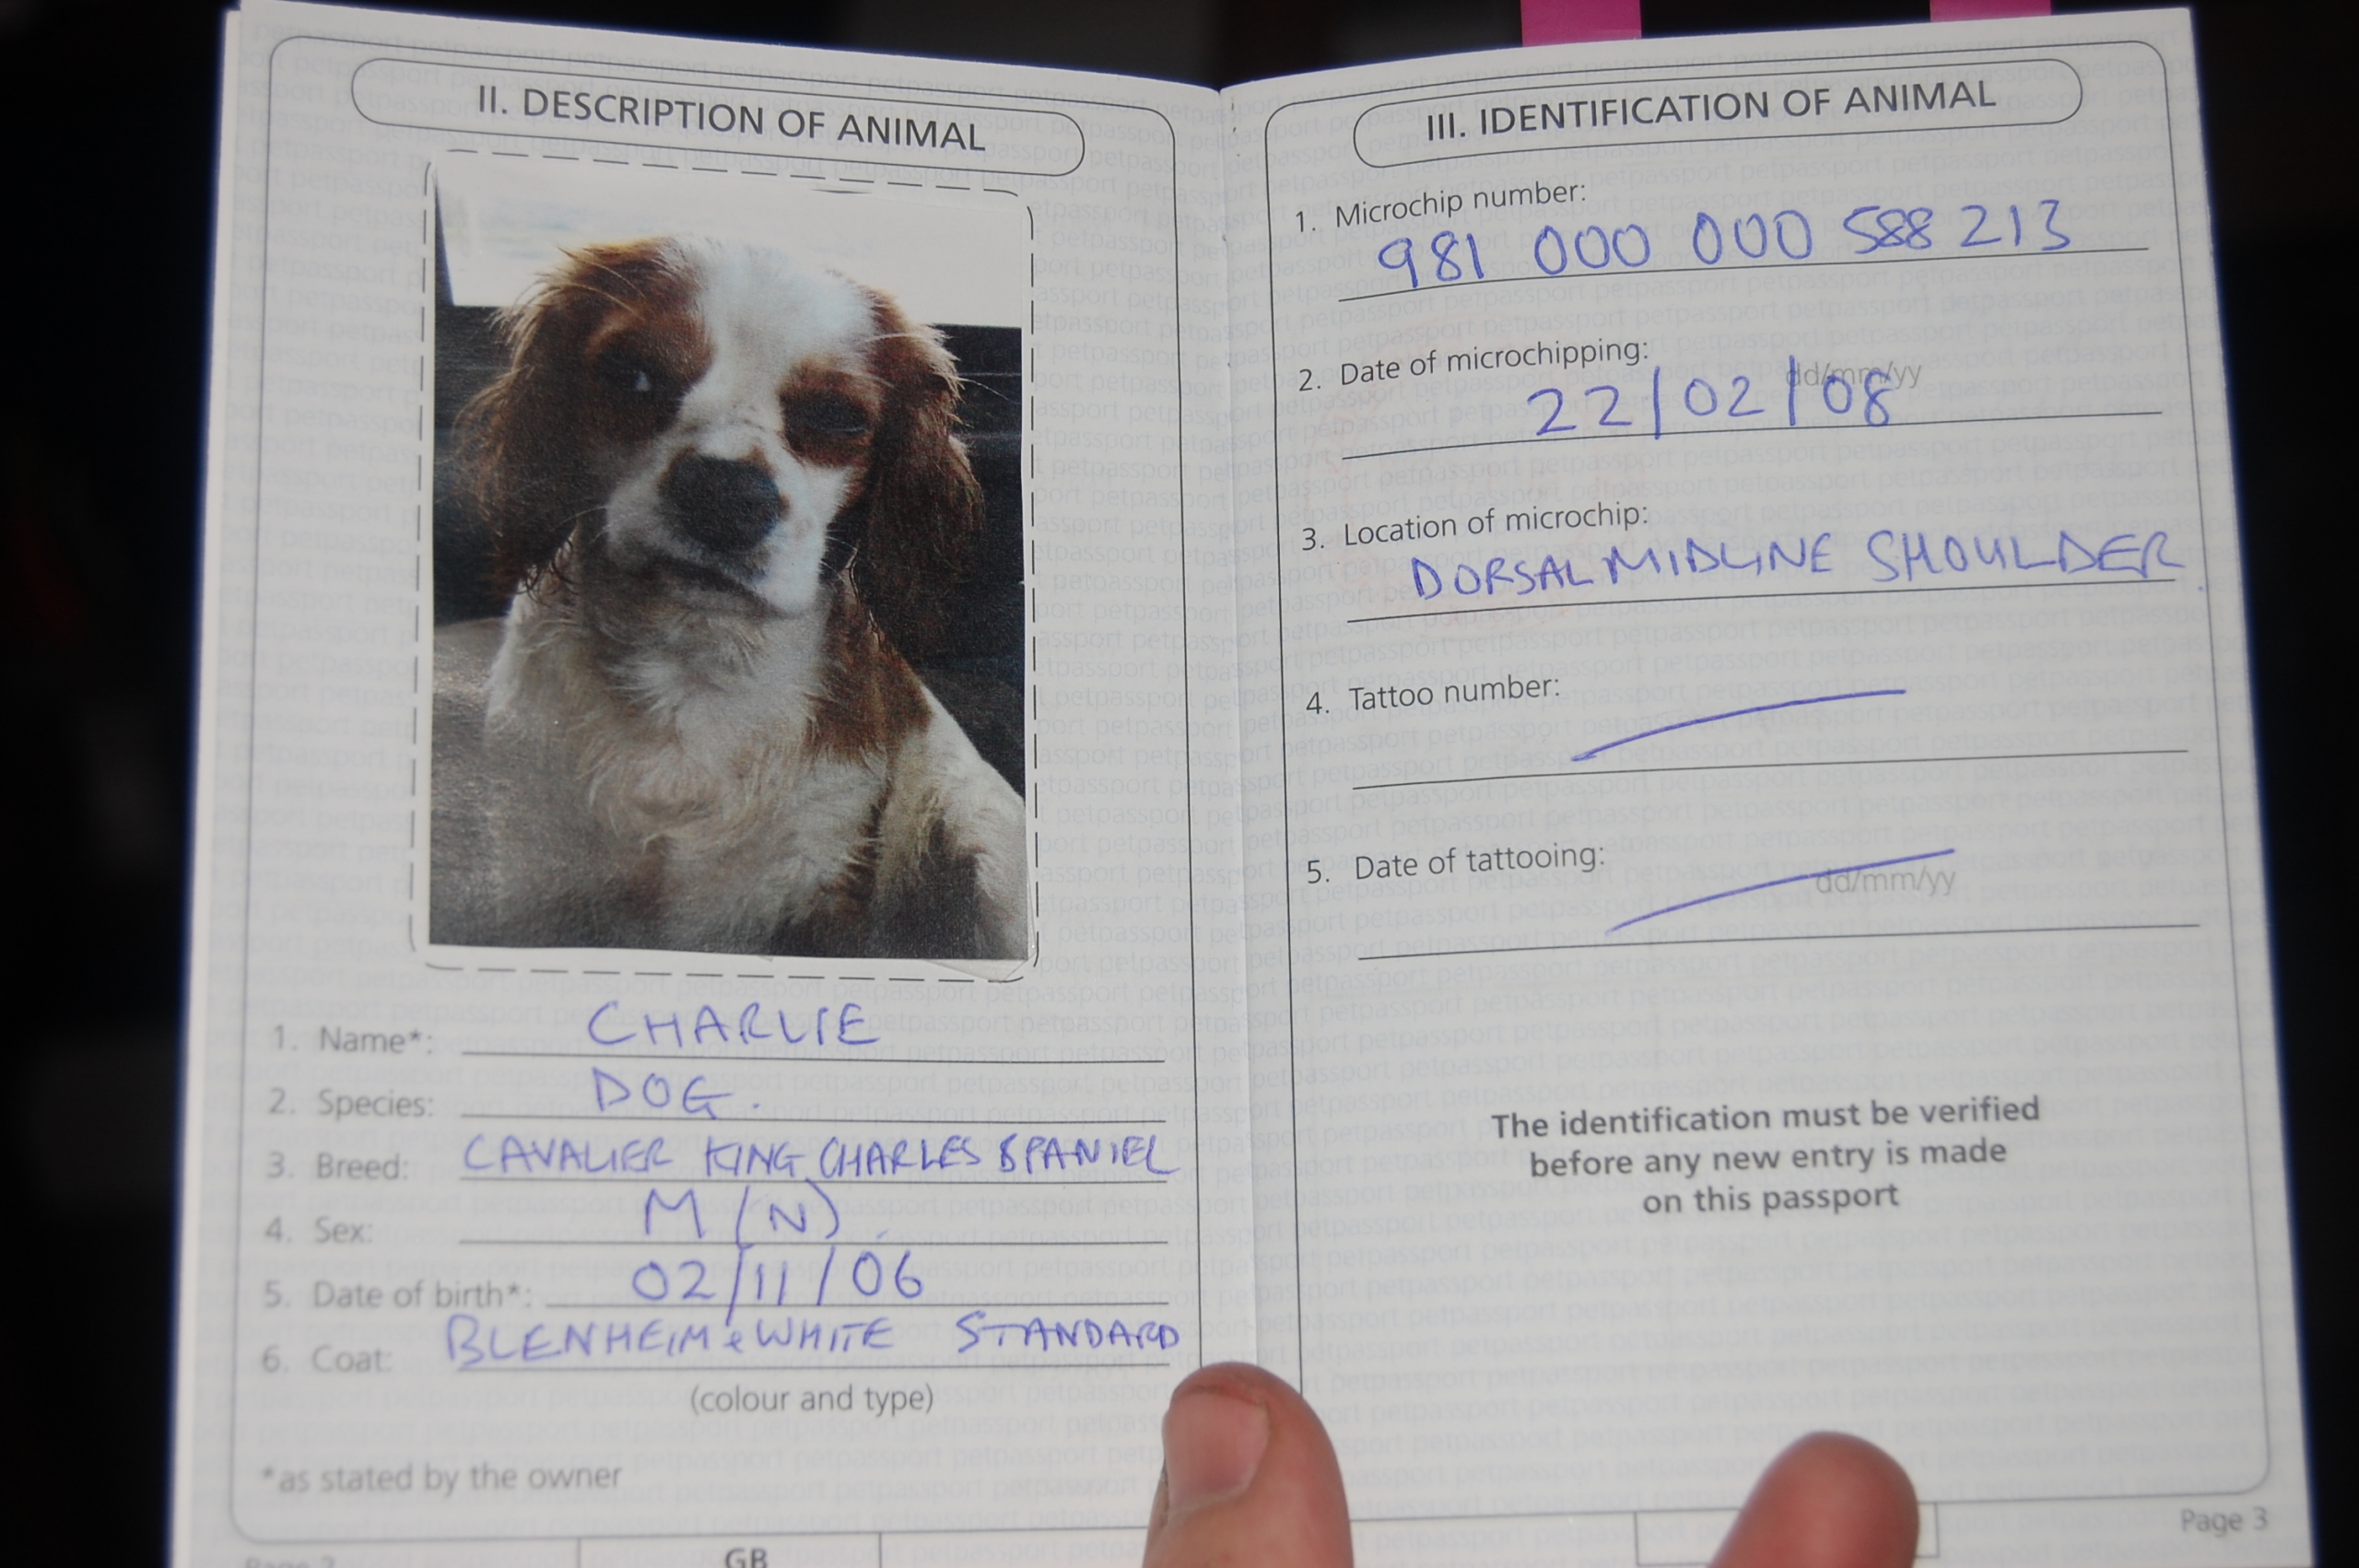 II. DESCRIPTION OF ANIMAL
1. Name*: CHARLIE
2. Species: DOG.
3. Breed: CAVALIER KING CHARLES SPANIEL
4. Sex: M (N).
5. Date of birth*: 02/11/06
6. Coat: BLENHEIM & WHITE STANDARD
(colour and type)
*as stated by the owner
Page 2
GB
III. IDENTIFICATION OF ANIMAL
1. Microchip number:
981 000 000 588 213
2. Date of microchipping:
dd/mm/yy
22/02/08
3. Location of microchip:
DORSAL MIDLINE SHOULDER.
4. Tattoo number:
5. Date of tattooing:
dd/mm/yy
The identification must be verified
before any new entry is made
on this passport
Page 3